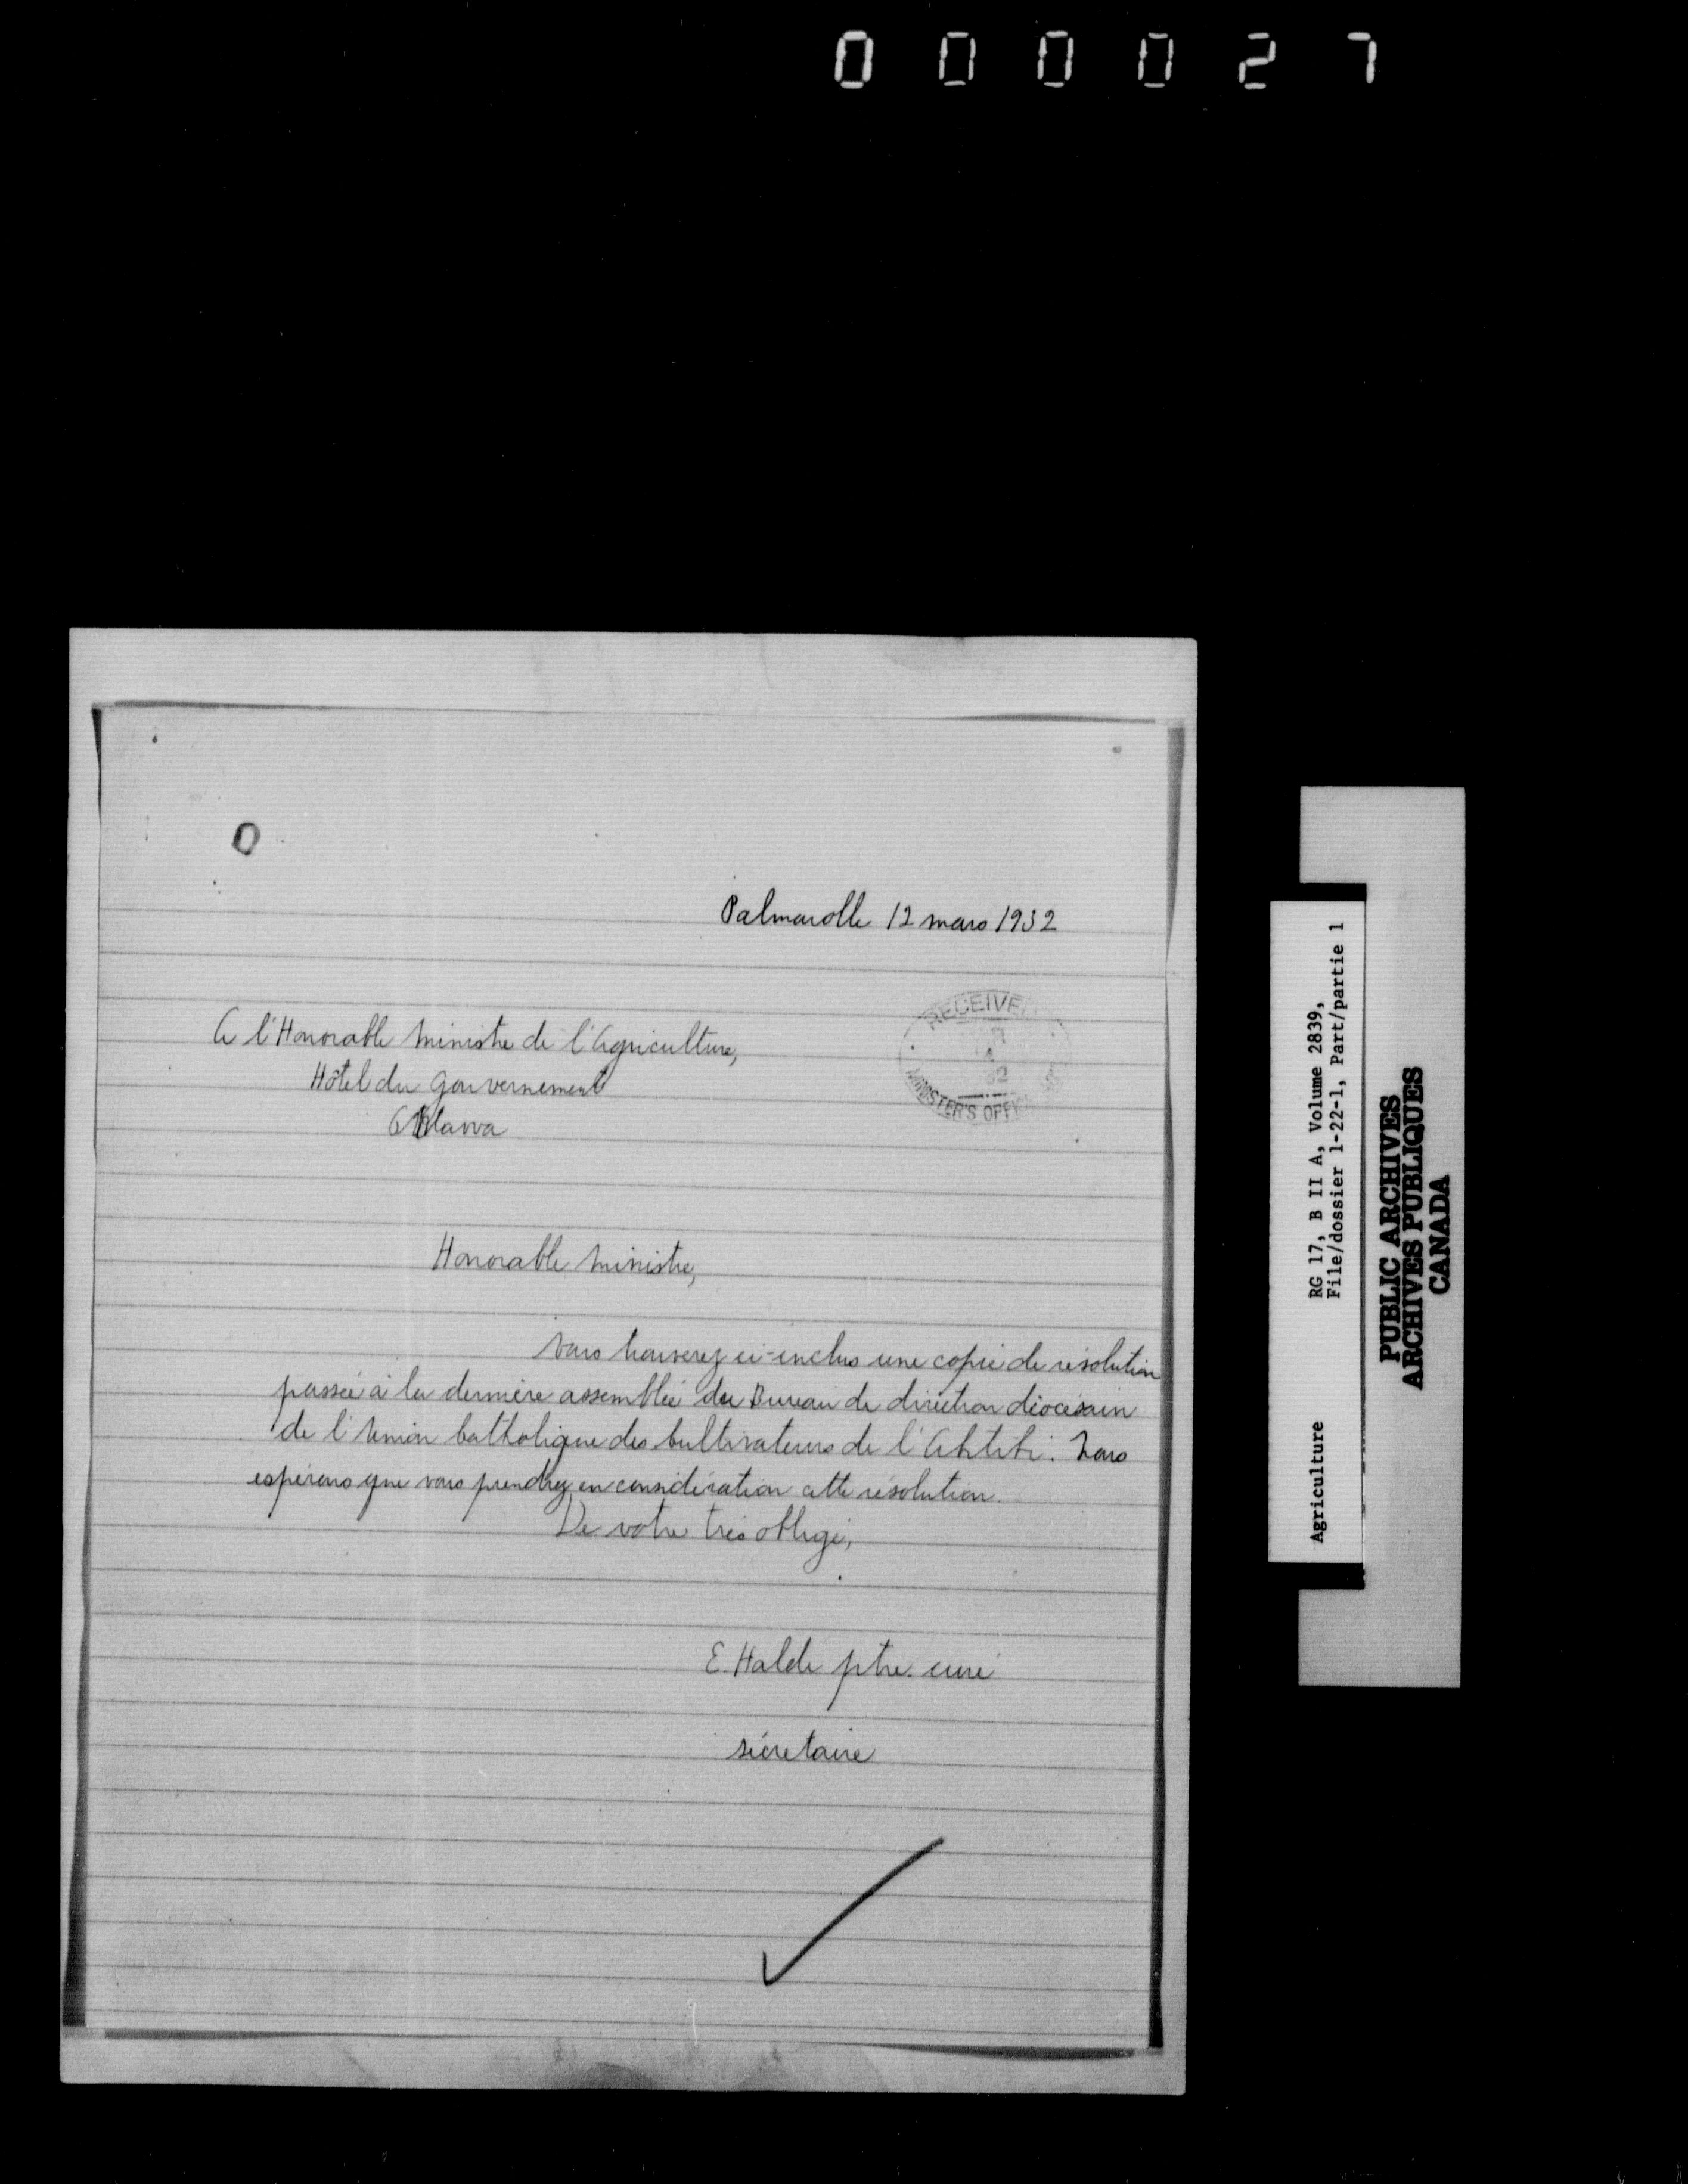 000027
Palmarolle 12 mars 1932
RECEIVED
32
MINISTER'S OFFICE
A l'Honorable Ministre de l'Agriculture,
Hôtel du Gouvernement
Ottawa
Honorable Ministre,
Vous trouverez ci-inclus une copie de résolution
passée à la dernière assemblée du Bureau de direction diocésain
de l'Union Catholique des Cultivateurs de l'Abitibi. Nous
espérons que vous prendrez en considération cette résolution.
De votre très obligé,
E. Halde ptre. curé
sécretaire
Agriculture RG 17, B II A, Volume 2839,
File/dossier 1-22-1, Part/partie 1
PUBLIC ARCHIVES
ARCHIVES PUBLIQUES
CANADA